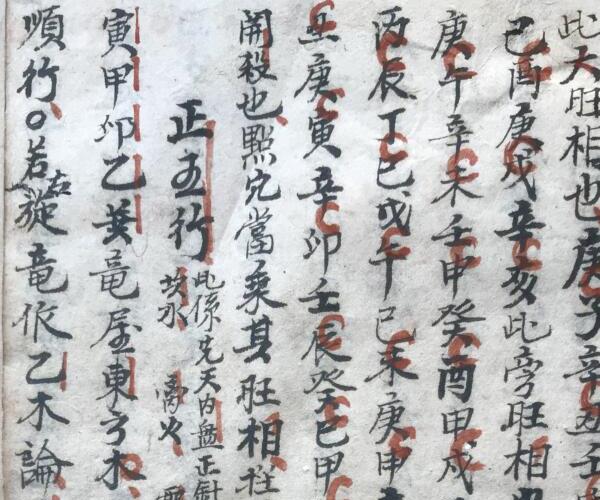 此大旺相也庚子辛丑壬
己酉庚戌辛亥此旁旺相
庚午辛未壬申癸酉甲戌
丙辰丁巳戊午己未庚申
丑庚寅辛卯壬辰癸巳甲
開殺也點穴當乘其旺相
正五行
此係先天内盤正針
坎水 离火
寅甲卯乙巽竜屋東方木
順行○若左旋竜依乙木論